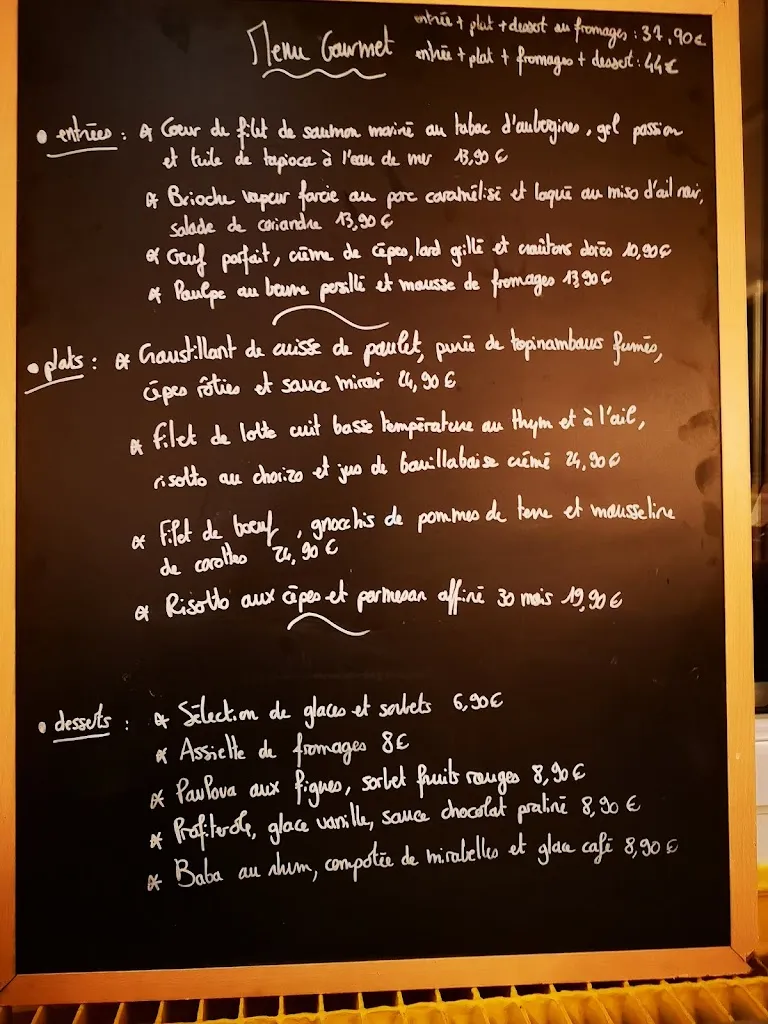 Menu Gourmet
entrée + plat + dessert ou fromages : 37,90€
entrée + plat + fromages + dessert : 44€
• entrées : * Coeur de filet de saumon mariné au tabac d'aubergines, gel passion
et tuile de tapioca à l'eau de mer 13,90 €
* Brioche vapeur farcie au porc caramélisé et laqué au miso d'ail noir,
salade de coriandre 13,90 €
* Oeuf parfait, crème de cèpes, lard grillé et croûtons dorés 10,90€
* Poulpe au beurre persillé et mousse de fromages 13,90€
• plats : * Croustillant de cuisse de poulet, purée de topinambours fumés,
cèpes rôties et sauce miroir 24,90 €
* Filet de lotte cuit basse température au thym et à l'ail,
risotto au chorizo et jus de bouillabaisse crémé 24,90€
* Filet de boeuf, gnocchis de pommes de terre et mousseline
de carottes 24,90 €
* Risotto aux cèpes et parmesan affiné 30 mois 19,90 €
• desserts : * Sélection de glaces et sorbets 6,90€
* Assiette de fromages 8€
* Pavlova aux figues, sorbet fruits rouges 8,90 €
* Profiterole, glace vanille, sauce chocolat praliné 8,90 €
* Baba au rhum, compotée de mirabelles et glace café 8,90 €